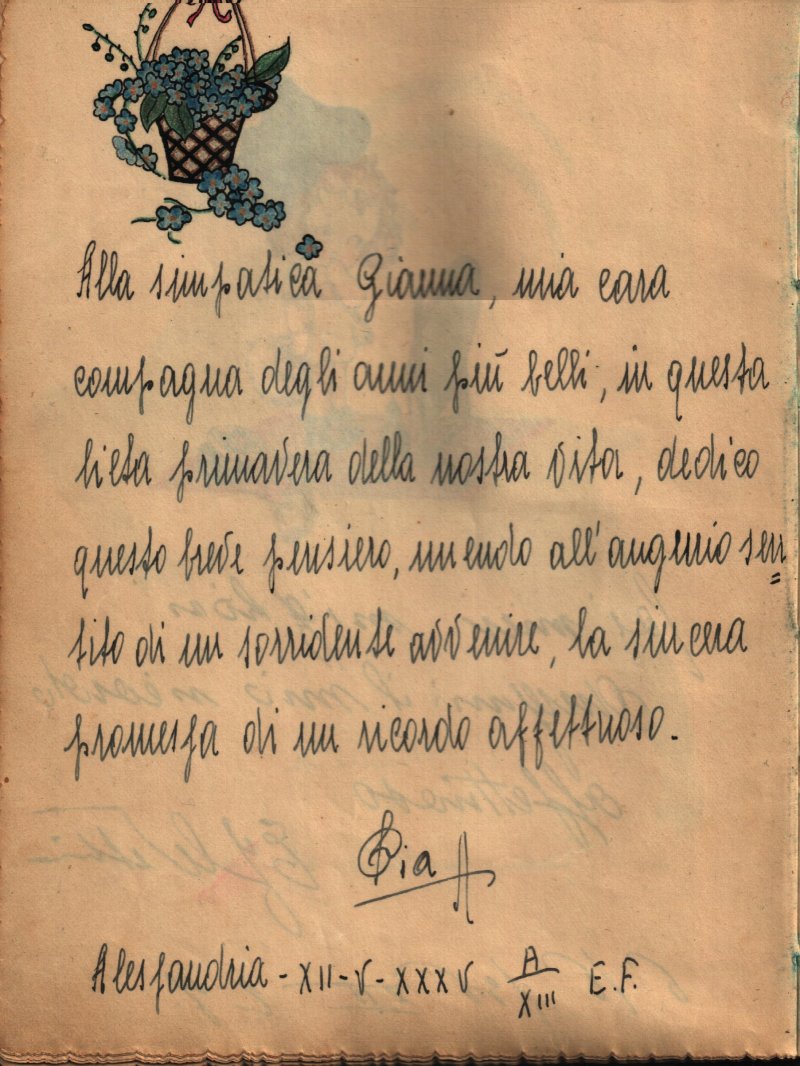 Alla simpatica Gianna, mia cara
compagna degli anni più belli, in questa
lieta primavera della nostra vita, dedico
questo breve pensiero, unendo all'augurio sen
tito di un sorridente avvenire, la sincera
promessa di un ricordo affettuoso.
Pia A
Alessandria - XII - V - XXXV A/XIII E.F.